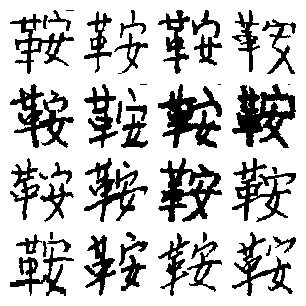 鞍鞍鞍鞍
鞍鞍鞍鞍
鞍鞍鞍鞍
鞍鞍鞍鞍